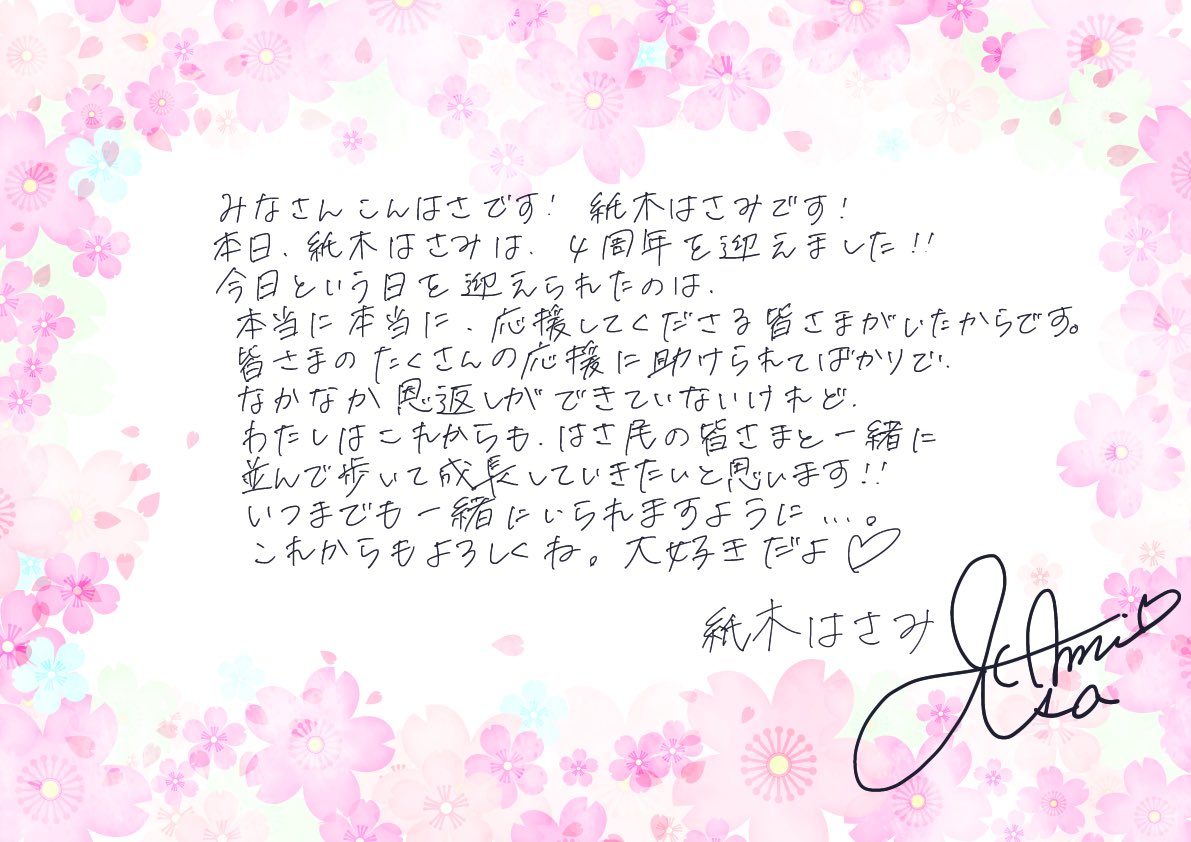 みなさんこんはさです! 紙木はさみです!
本日、紙木はさみは、4周年を迎えました!!
今日という日を迎えられたのは、
本当に本当に、応援してくださる皆さまがいたからです。
皆さまのたくさんの応援に助けられてばかりで、
なかなか恩返しができていないけれど、
わたしはこれからも、はさ民の皆さまと一緒に
並んで歩いて成長していきたいと思います!!
いつまでも一緒にいられますように…。
これからもよろしくね。大好きだよ♡
紙木はさみ